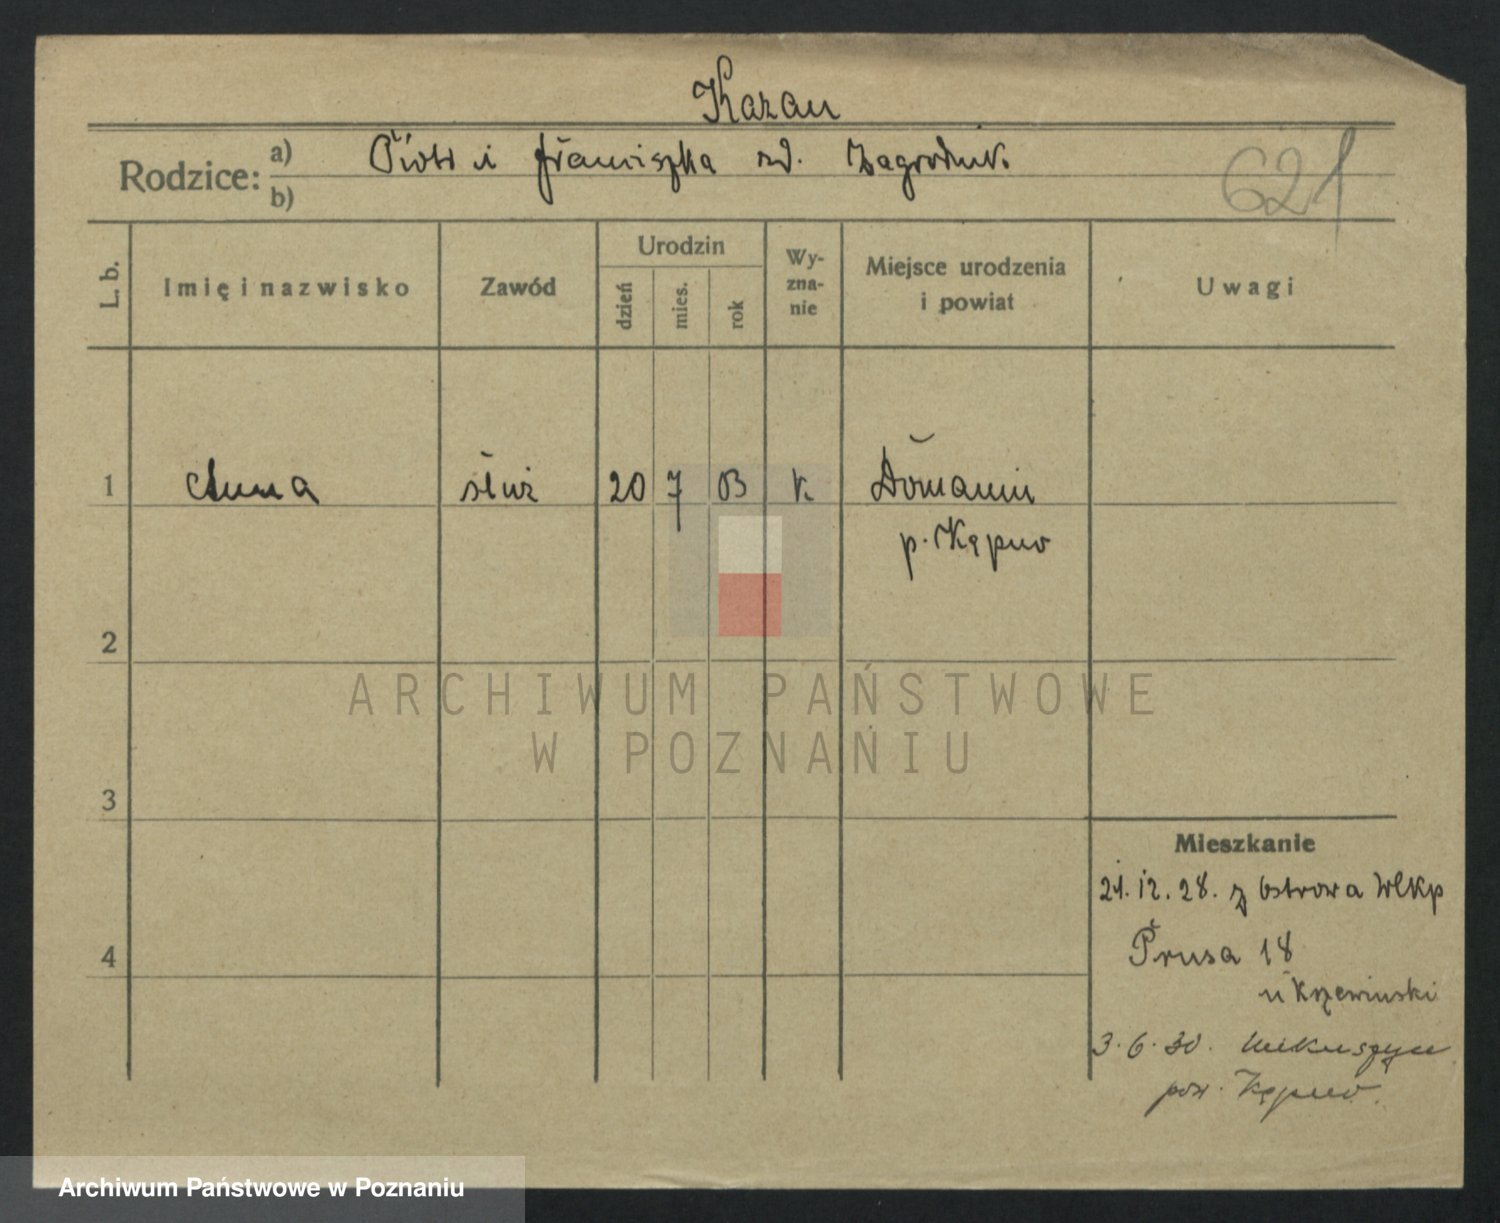 Kazan
Rodzice: a) Piotr i Franciszka zd. Zagrodnik.
b)
621
L. b.
Imię i nazwisko
Zawód
Urodzin
dzień
mies.
rok
Wy-
zna-
nie
Miejsce urodzenia
i powiat
Uwagi
1 Anna służ 20 7 03 k. Domanin
p. Kępno
2
3
4
Mieszkanie
21.12.28. z Ostrowa Wlkp
Prusa 18
u Krzewinski
3.6.30.
pow. Kępno.
ARCHIWUM PAŃSTWOWE
W POZNANIU
Archiwum Państwowe w Poznaniu